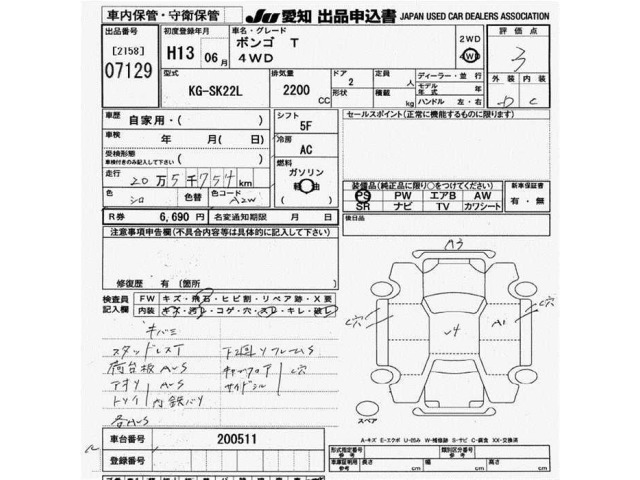 車内保管・守衛保管
JU 愛知 出品申込書 JAPAN USED CAR DEALERS ASSOCIATION
出品番号
[2158]
07129
初度登録年月
H13 06月
車名・グレード
ボンゴ T
4WD
2WD
4WD
評価点
3
外装 内装
D C
型式
KG-SK22L
排気量
2200 CC
ドア
2
形状
定員 人
積載 kg
ディーラー・並行
モデル年式 年
ハンドル 左・右
車歴
自家用・( )
シフト
5F
セールスポイント(正常に機能するものに限ります)
車検 年 月( 日)
冷房
AC
受検形態
車検付きのみ記入して下さい
( )
燃料
ガソリン
軽油
走行
20万5千754km
色 シロ
色替
色コード A2W
装備品(純正品に限り○をつけてください)
PS PW エアB AW
SR ナビ TV カワシート
新車保証書
有・無
R券 6,690円 名変通知期限 月 日
後日品
注意事項申告欄(不具合内容等は具体的に記入して下さい)
修復歴 有(箇所 )
検査員記入欄
FW キズ・飛石・ヒビ割・リペア跡・X要
内装 キズ・汚レ・コゲ・穴・スレ・キレ・破レ
キバミ
スタッドレスT
荷台板AUS
アオリ AUS
下回りフレームS
キャブフロア
サイドシル
穴
内鉄バリ
各AUS
A3
C穴
U4
A1
C穴
スペア
A-キズ E-エクボ U-凹み W-補修跡 S-サビ C-腐食 XX-交換済
車台番号 200511
登録番号
形式指定番号 参考
類別区分番号 参考
車庫証明用 参考
長さ cm
幅 cm
高さ cm